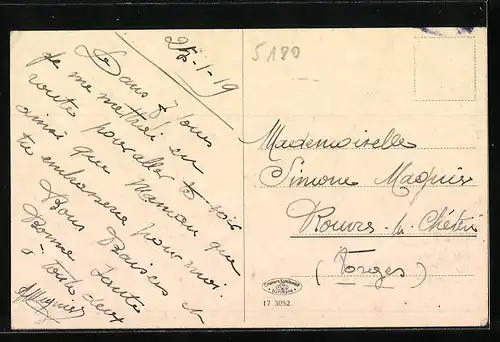 25-1-19
Dans 8 jours
je me mettrai en
route pour aller te voir
ainsi que Maman que
tu embrassera pour moi.
Bons Baisers et
Bonne Santé
à toutes deux
5180
Mademoiselle
Simone Magnis
Rouvres-la-Chétive
(Vosges)
17 3052